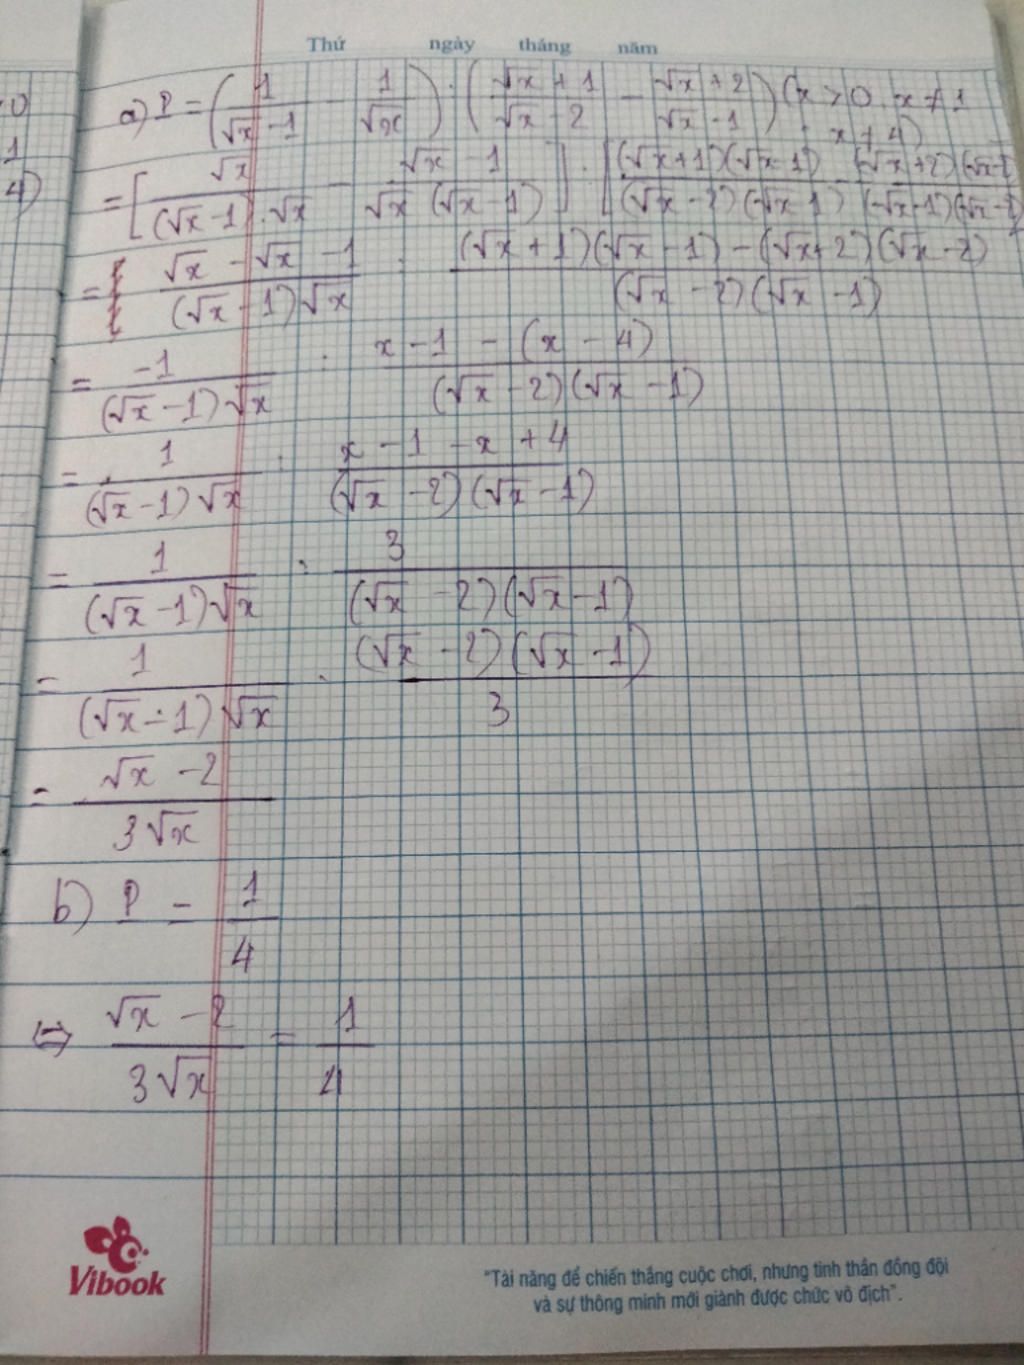 Thứ ngày tháng năm
0
1
4)
a) P = (1/(√x - 1) - 1/√x) : ((√x + 1)/(√x - 2) - (√x + 2)/(√x - 1)) (x > 0, x ≠ 1
x ≠ 4)
= [√x/((√x - 1).√x) - (√x - 1)/(√x (√x - 1))] : [(√x + 1)(√x - 1)/((√x - 2)(√x - 1)) - (√x + 2)(√x - 2)/((√x - 1)(√x - 2))
= (√x - √x - 1)/((√x - 1)√x) : ((√x + 1)(√x - 1) - (√x + 2)(√x - 2))/((√x - 2)(√x - 1))
= -1/((√x - 1)√x) : (x - 1 - (x - 4))/((√x - 2)(√x - 1))
= 1/((√x - 1)√x) : (x - 1 - x + 4)/((√x - 2)(√x - 1))
= 1/((√x - 1)√x) : 3/((√x - 2)(√x - 1))
= 1/((√x - 1)√x) . (√x - 2)(√x - 1)/3
= (√x - 2)/(3√x)
b) P = 1/4
⇔ (√x - 2)/(3√x) = 1/4
Vibook
"Tài năng để chiến thắng cuộc chơi, nhưng tinh thần đồng đội
và sự thông minh mới giành được chức vô địch".